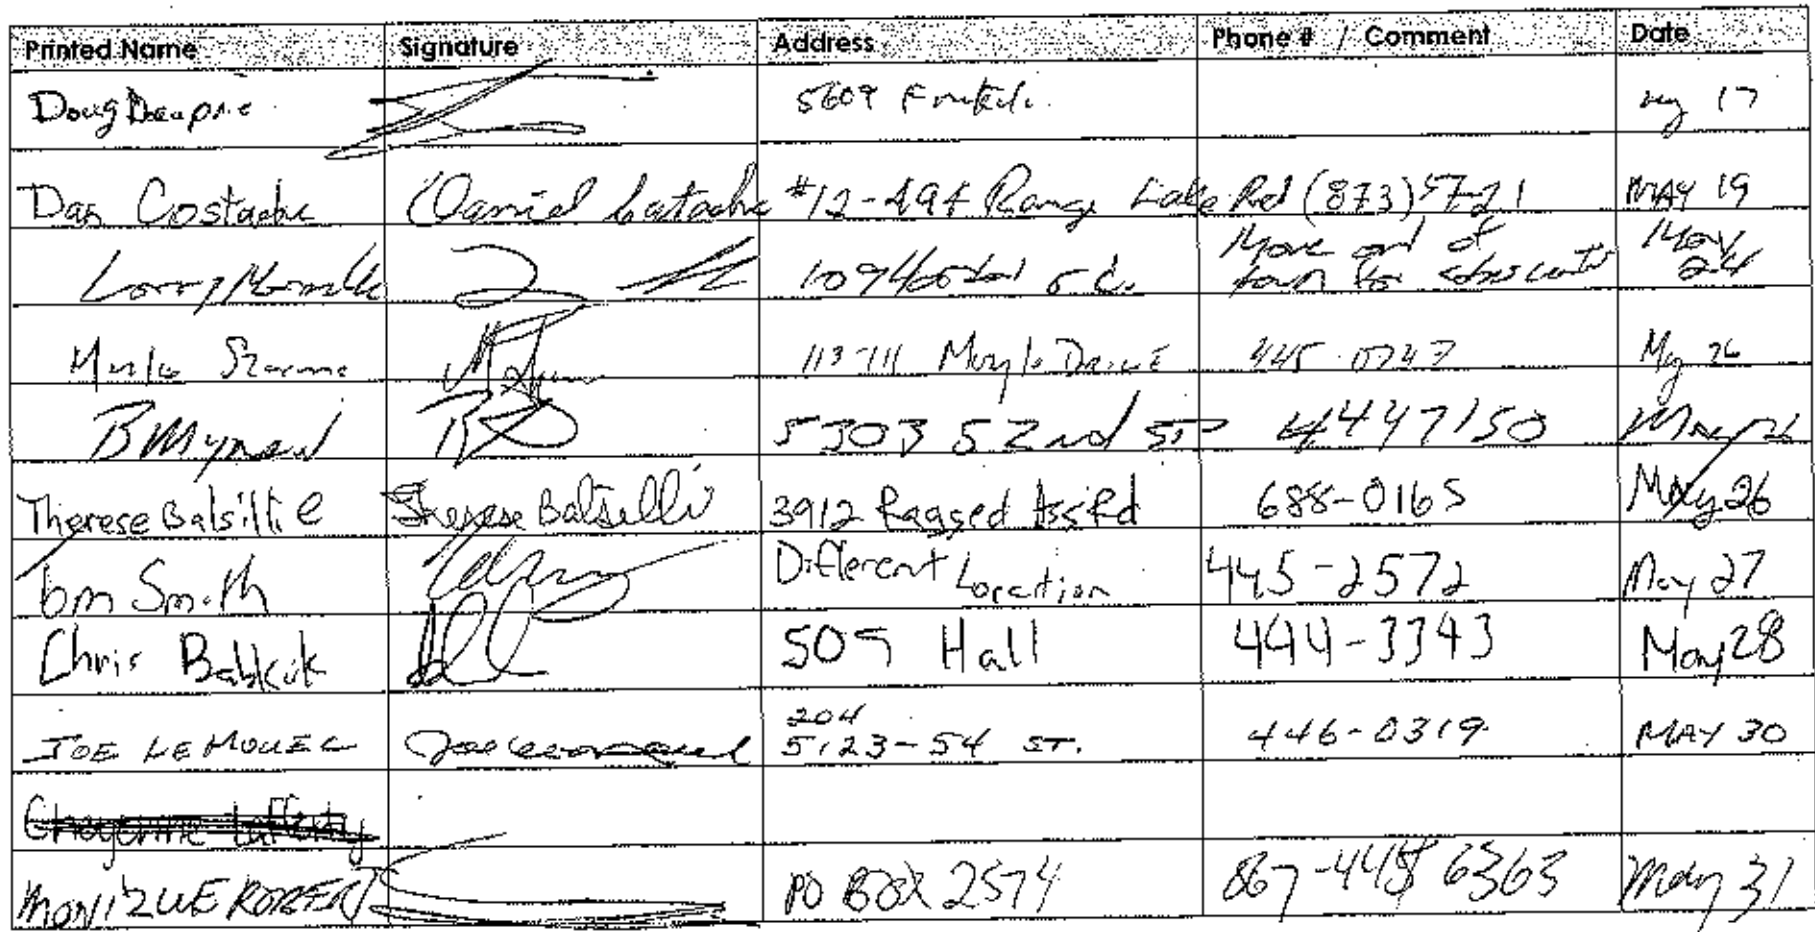 Printed Name Signature Address Phone # / Comment Date
Doug 5609 17
Dan Costache Daniel Costache #12-494 Range Lake Rd (873)5721 MAY 19
Larry Move out of May
town for 24
113-711 Drive 445-0747 May 26
B Mynard 5303 52nd ST 4447150 May 26
Therese Balsillie Therese Balsillie 3912 Ragged Ass Rd 688-0165 May 26
Tom Smith Different Location 445-2572 May 27
Chris 509 Hall 444-3343 May 28
204
JOE LE MOUEL 5123-54 ST. 446-0319 MAY 30
Cheyenne Lafferty
MONIQUE ROBERT PO BOX 2574 867-445 6363 May 31